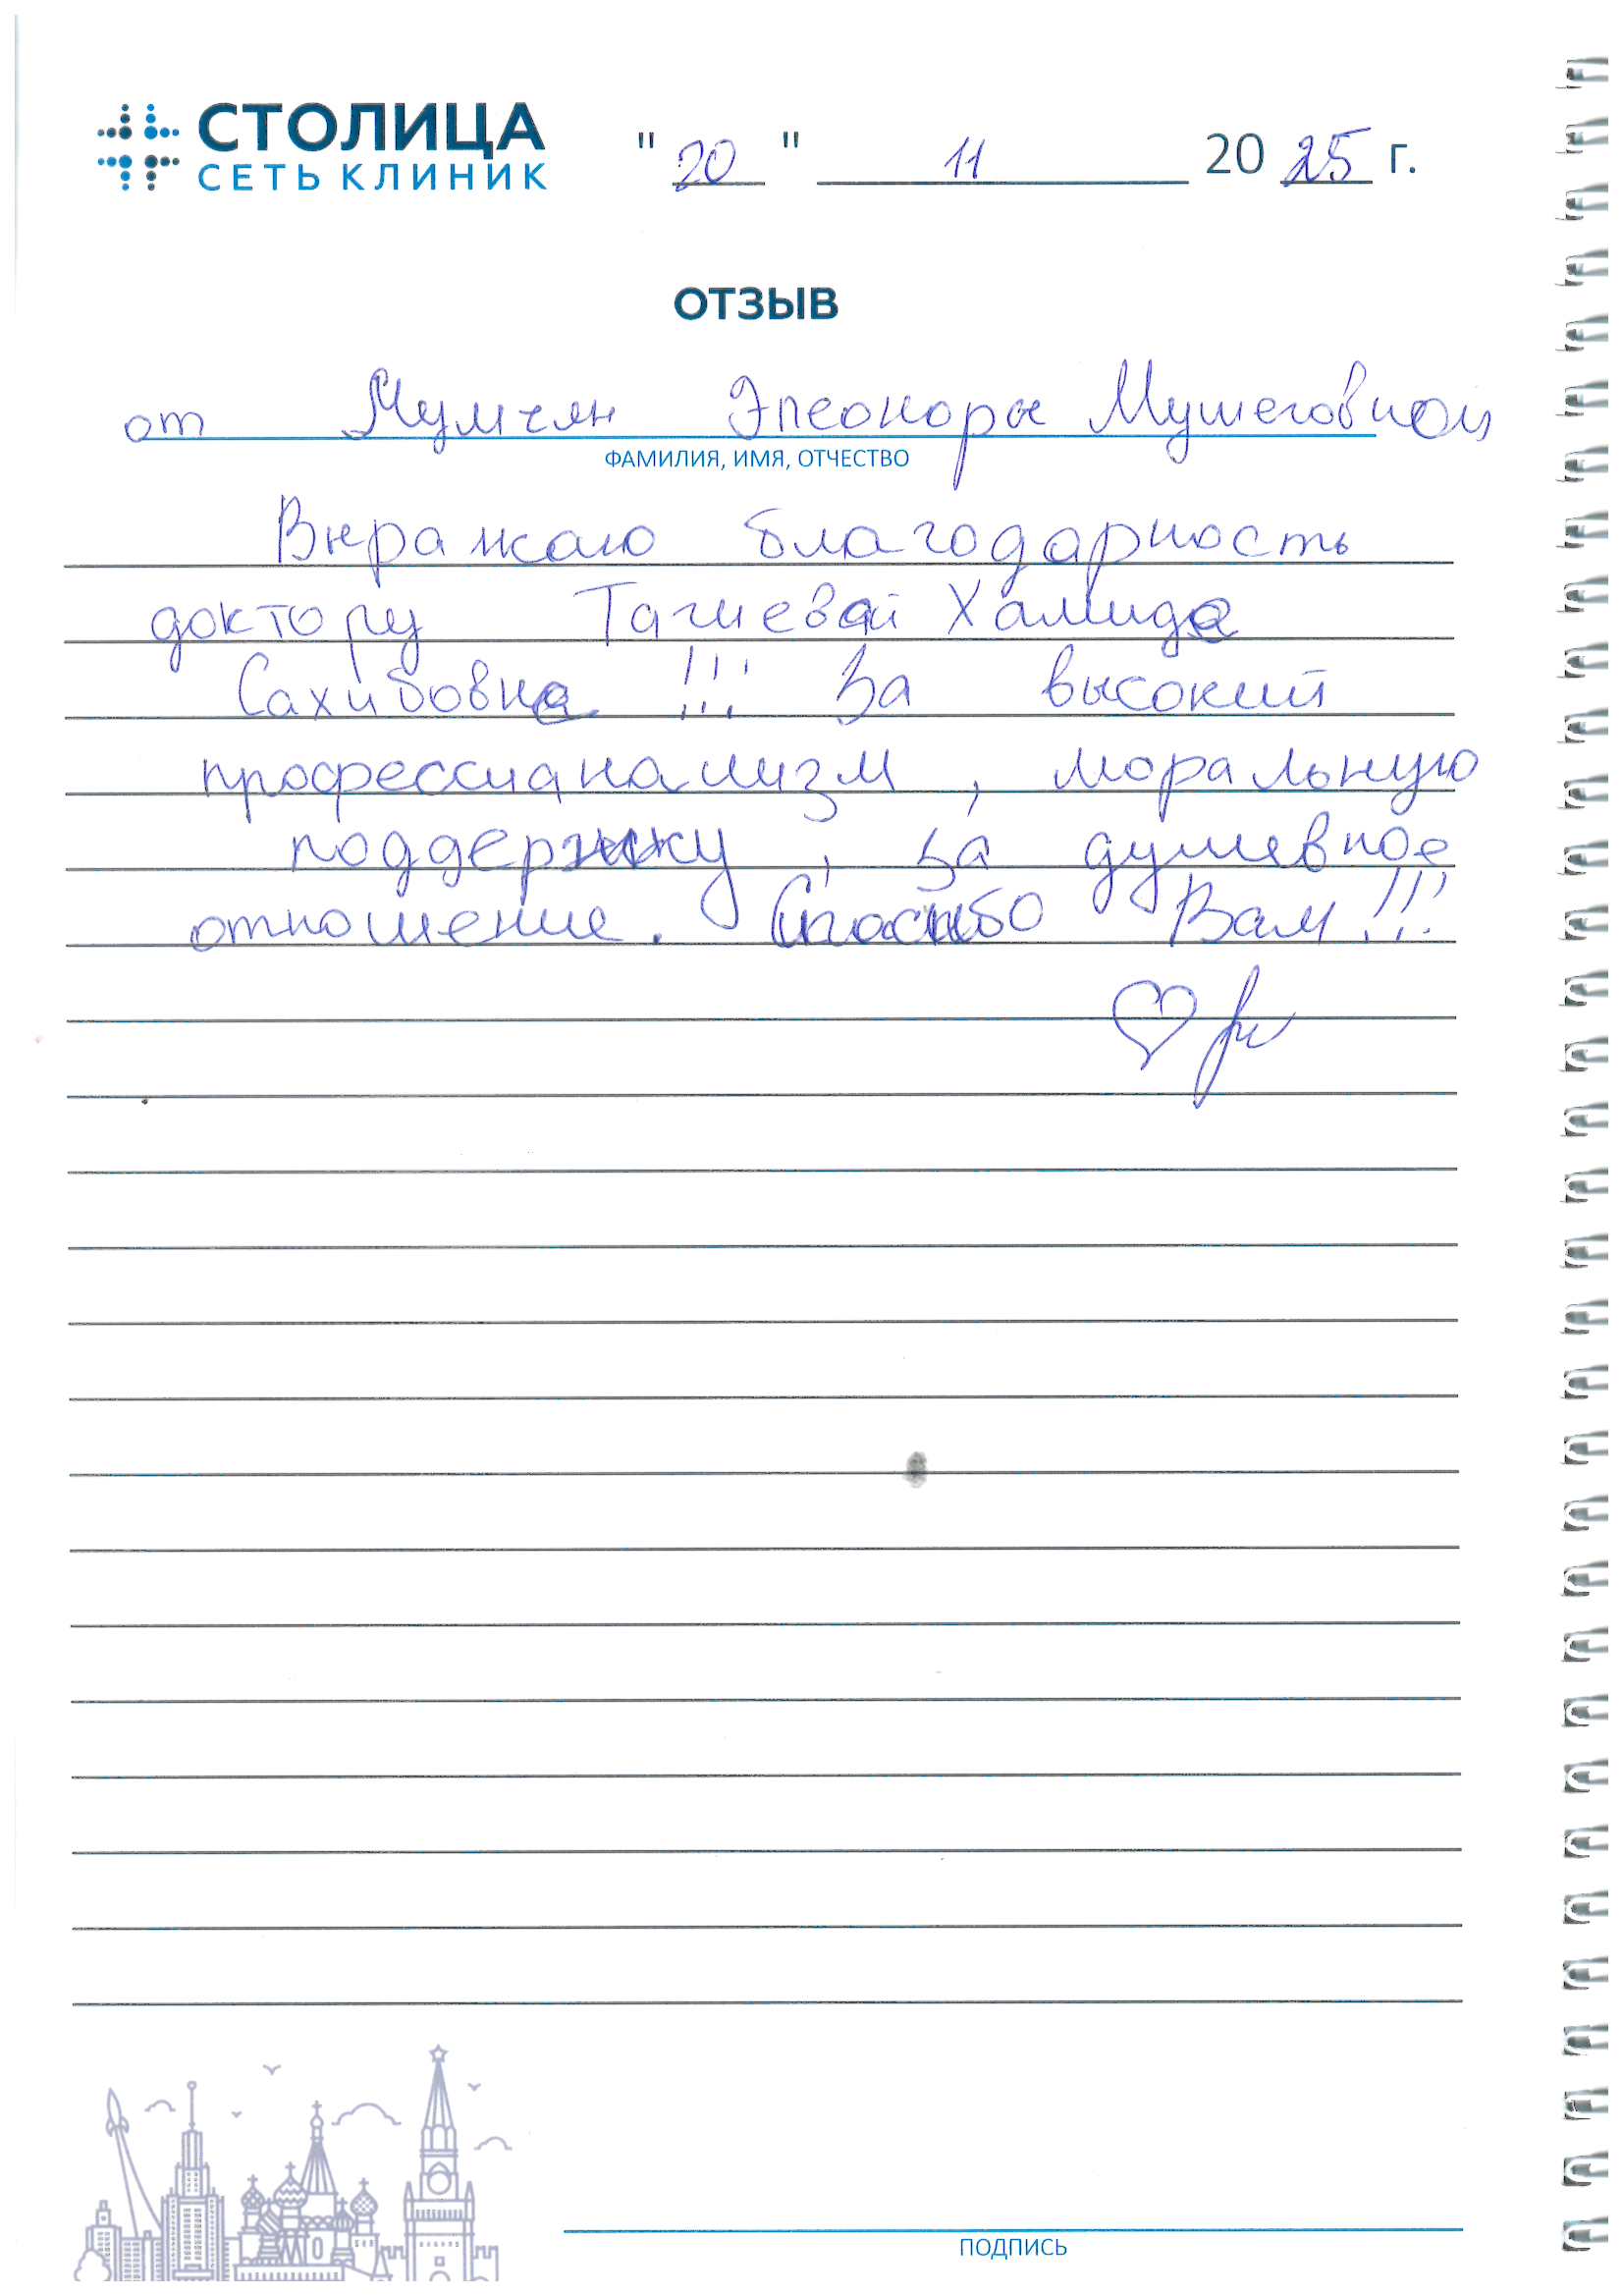 СТОЛИЦА
СЕТЬ КЛИНИК
"20" 11 2025 г.
ОТЗЫВ
от Мумчян Элеоноры Мушеговной
ФАМИЛИЯ, ИМЯ, ОТЧЕСТВО
Выражаю благодарность
доктору Тагиевой Хамиде
Сахибовне !!! За высокий
профессианализм, моральную
поддержку, за душевное
отношение. Спасибо Вам!!!
ПОДПИСЬ